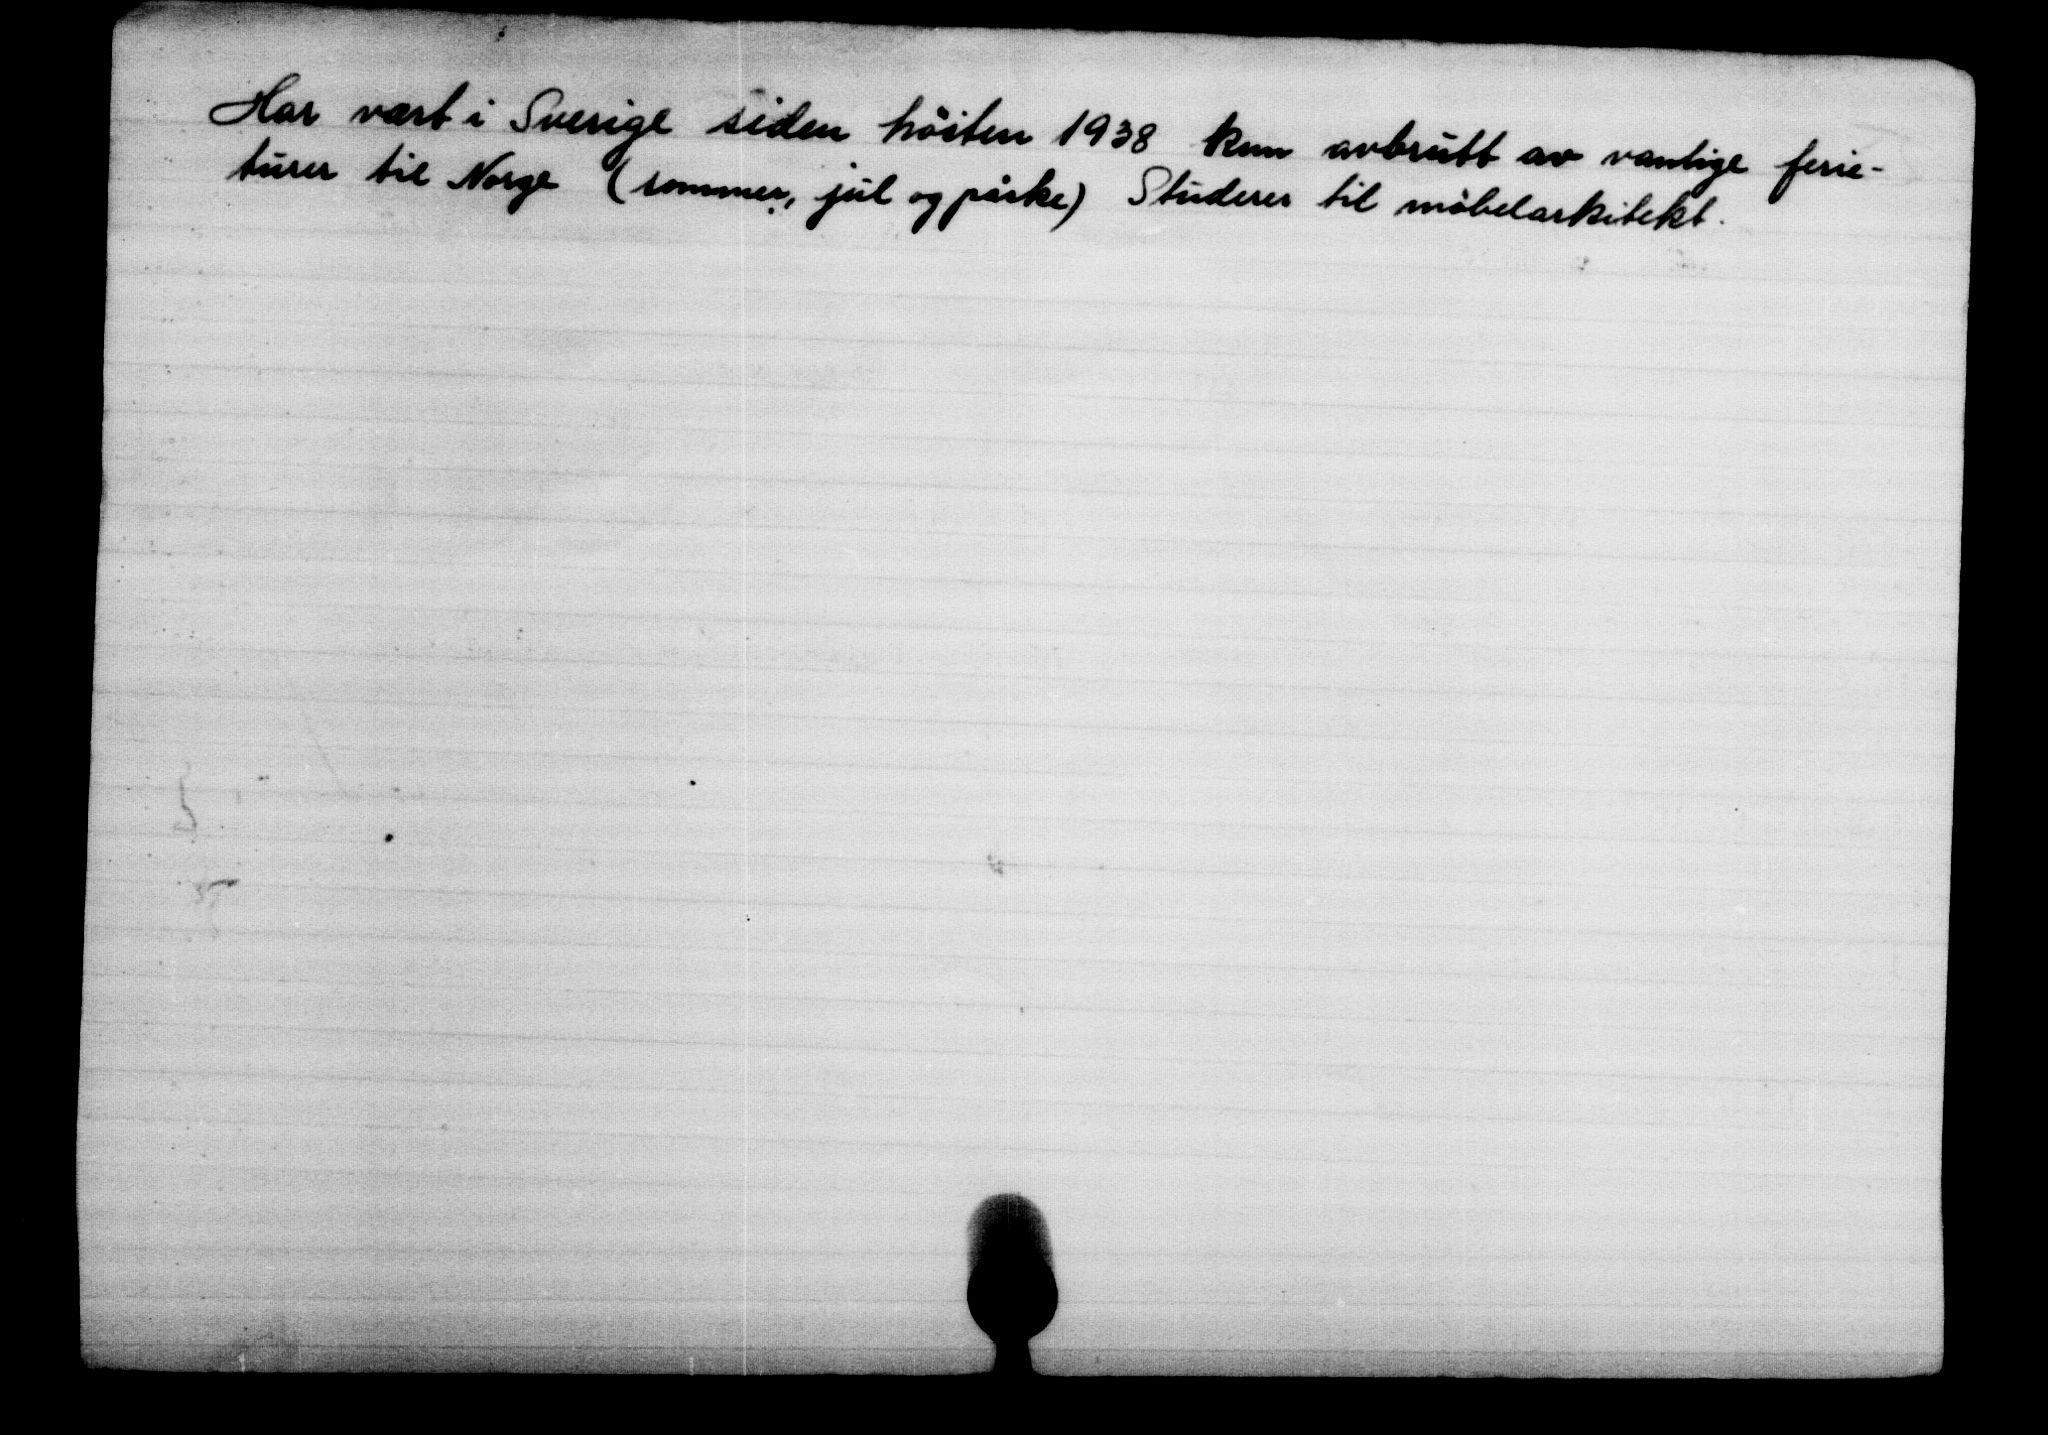 Har vært i Sverige siden höiten 1938 kun avbrutt av vanlige ferie-
turer til Norge (sommer, jul og påske) Studerer til möbelarkitekt.